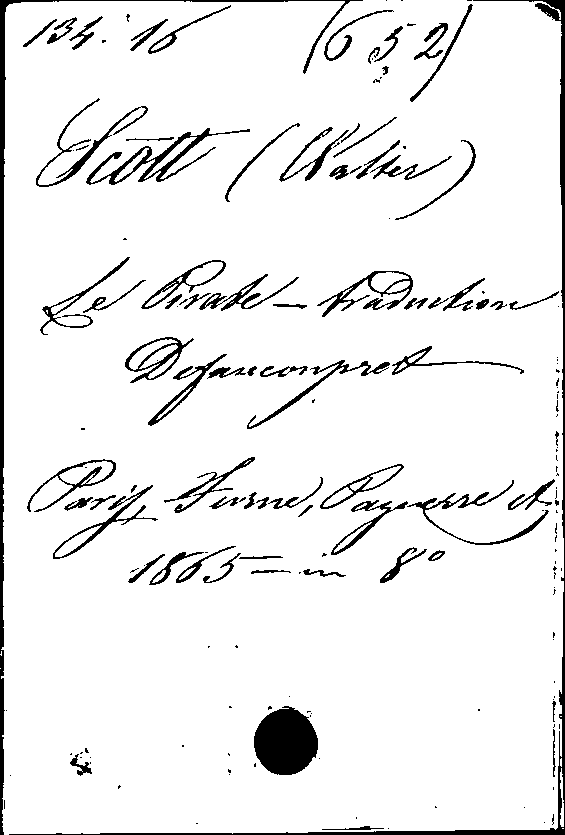 134.16 (652)
Scott (Walter)
Le Pirate - traduction
Defauconpret
Paris, Furne, Pagnerre et
1865 - in 8°